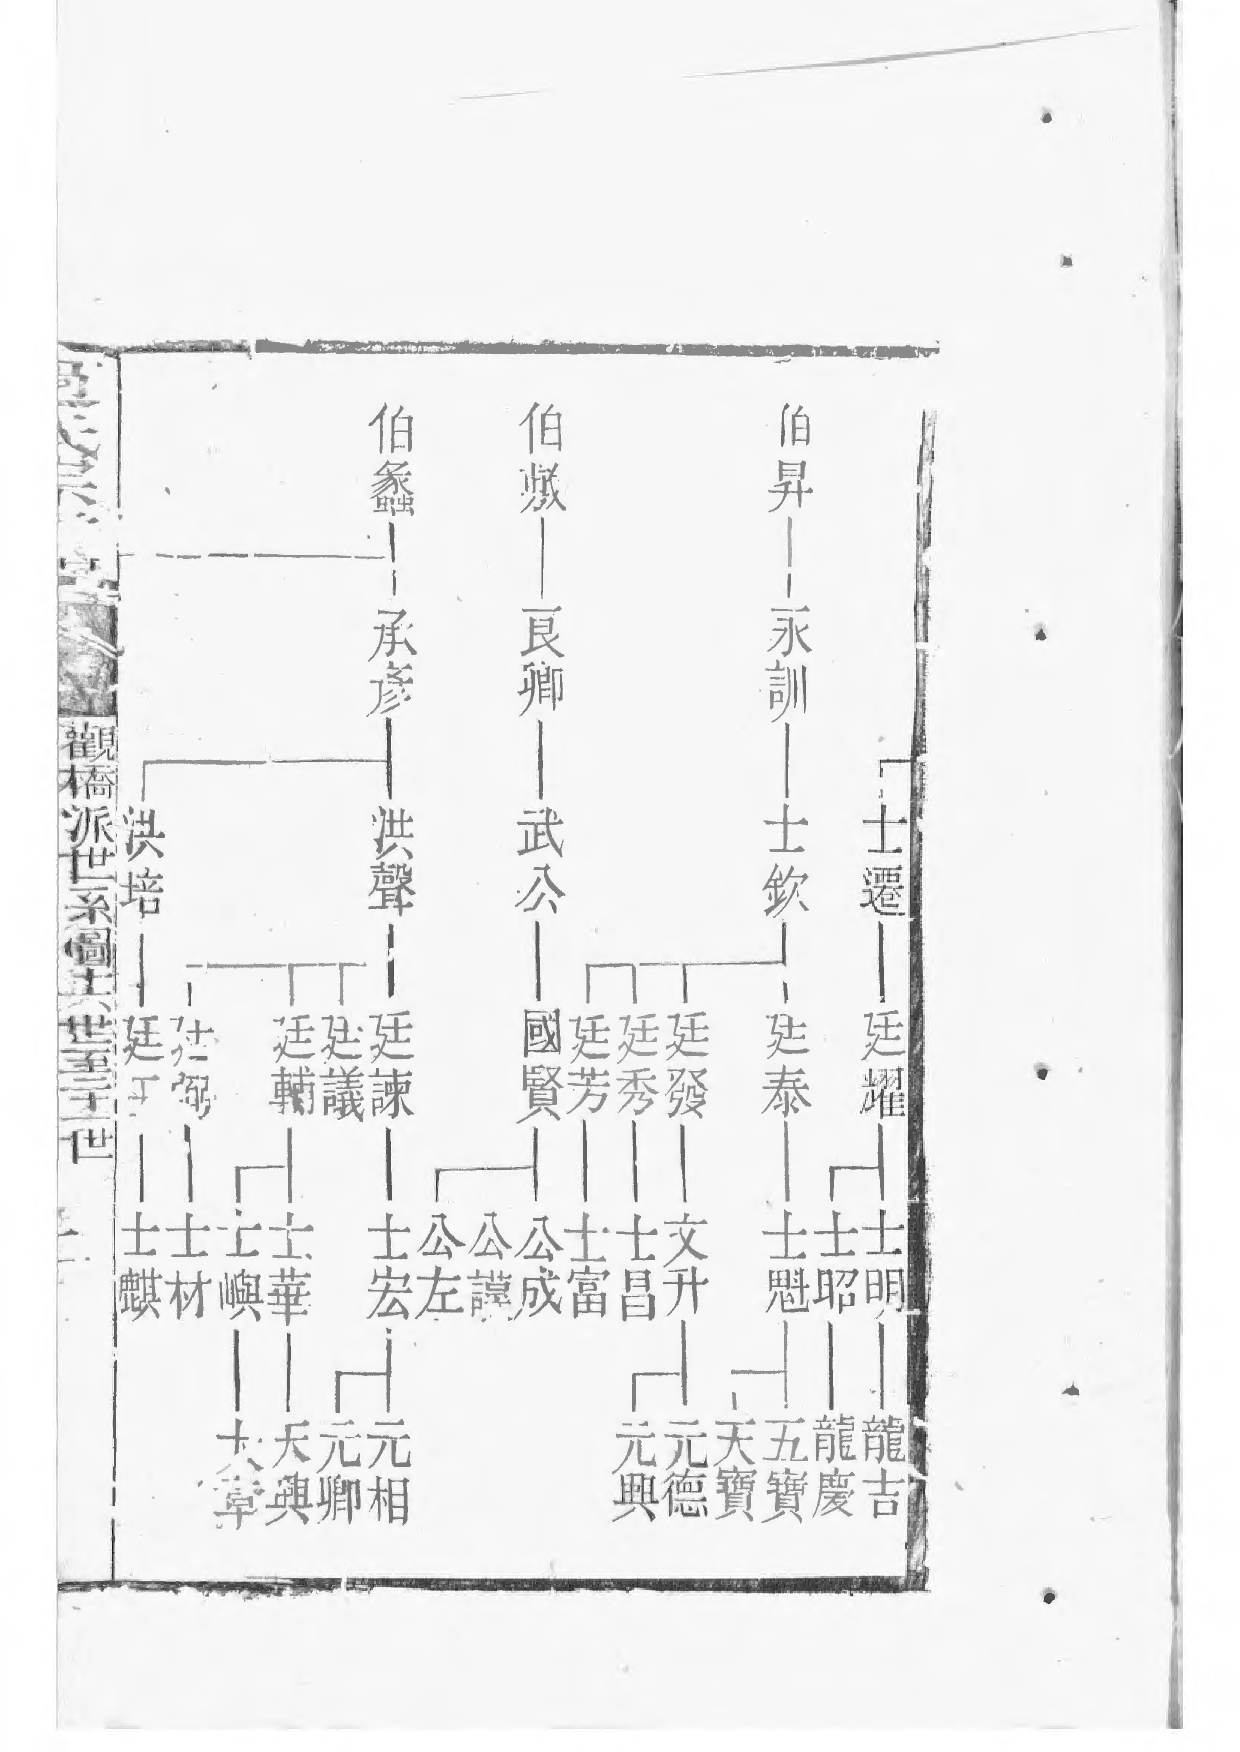 士遷
廷耀
士明
龍吉
士昭
龍慶
伯昇
永訓
士欽
廷泰
士魁
五寶
天寶
廷發
文升
元德
元興
廷秀
士昌
廷芳
士富
伯
良卿
武公
國賢
公成
公
公左
伯蠡
承彥
洪聲
廷諫
士宏
元相
元卿
廷議
廷輔
士華
天興
士嶼
士材
洪培
廷
士麒
觀橋派世系圖十六世至二十一世